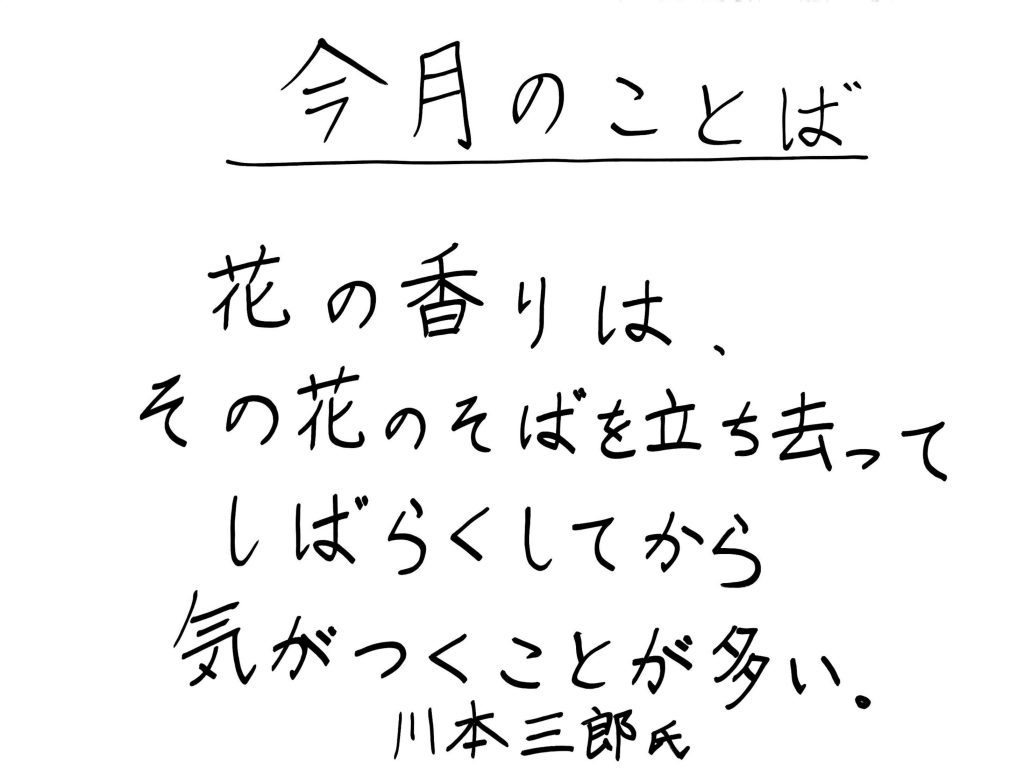 今月のことば
花の香りは、
その花のそばを立ち去って
しばらくしてから
気がつくことが多い。
川本三郎氏